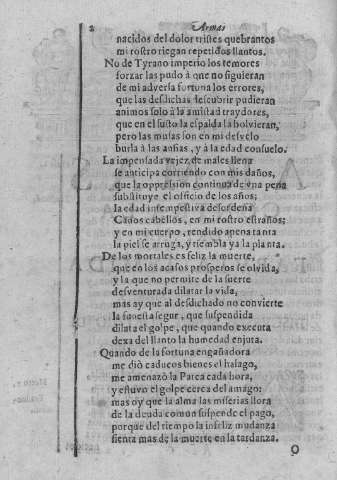 2 Armas
nacidos del dolor tristes quebrantos
mi rostro riegan repetidos llantos.
No de Tyrano imperio los temores
forzar las pudo à que no siguieran
de mi adversa fortuna los errores,
que las desdichas descubrir pudieran
animos solo à la amistad traydores,
que en el susto la espalda la bolvieran,
pero las musas son en mi desvelo
burla à las ansias, y à la edad consuelo.
La impensada vejez de males llena
se anticipa corriendo con mis daños,
que la oppresion continua de una pena
substituye el officio de los años;
la edad intempestiva desordena
Canos cabellos, en mi rostro estraños;
y en mi cuerpo, rendido apena tanta
la piel se arruga, y tiembla ya la planta.
De los mortales es feliz la muerte,
que en los acasos prosperos se olvida,
y la que no permite de la suerte
desventurada dilatar la vida,
mas ay que al desdichado no convierte
la funesta segur, que suspendida
dilata el golpe, que quando executa
dexa del llanto la humedad enjuta.
Quando de la fortuna engañadora
me diò caducos bienes el halago,
me amenazò la Parca cada hora,
y estuvo el golpe cerca del amago:
mas oy que la alma las miserias llora
de la deuda comun suspende el pago,
porque del tiempo la infeliz mudanza
sienta mas de la muerte en la tardanza.
O